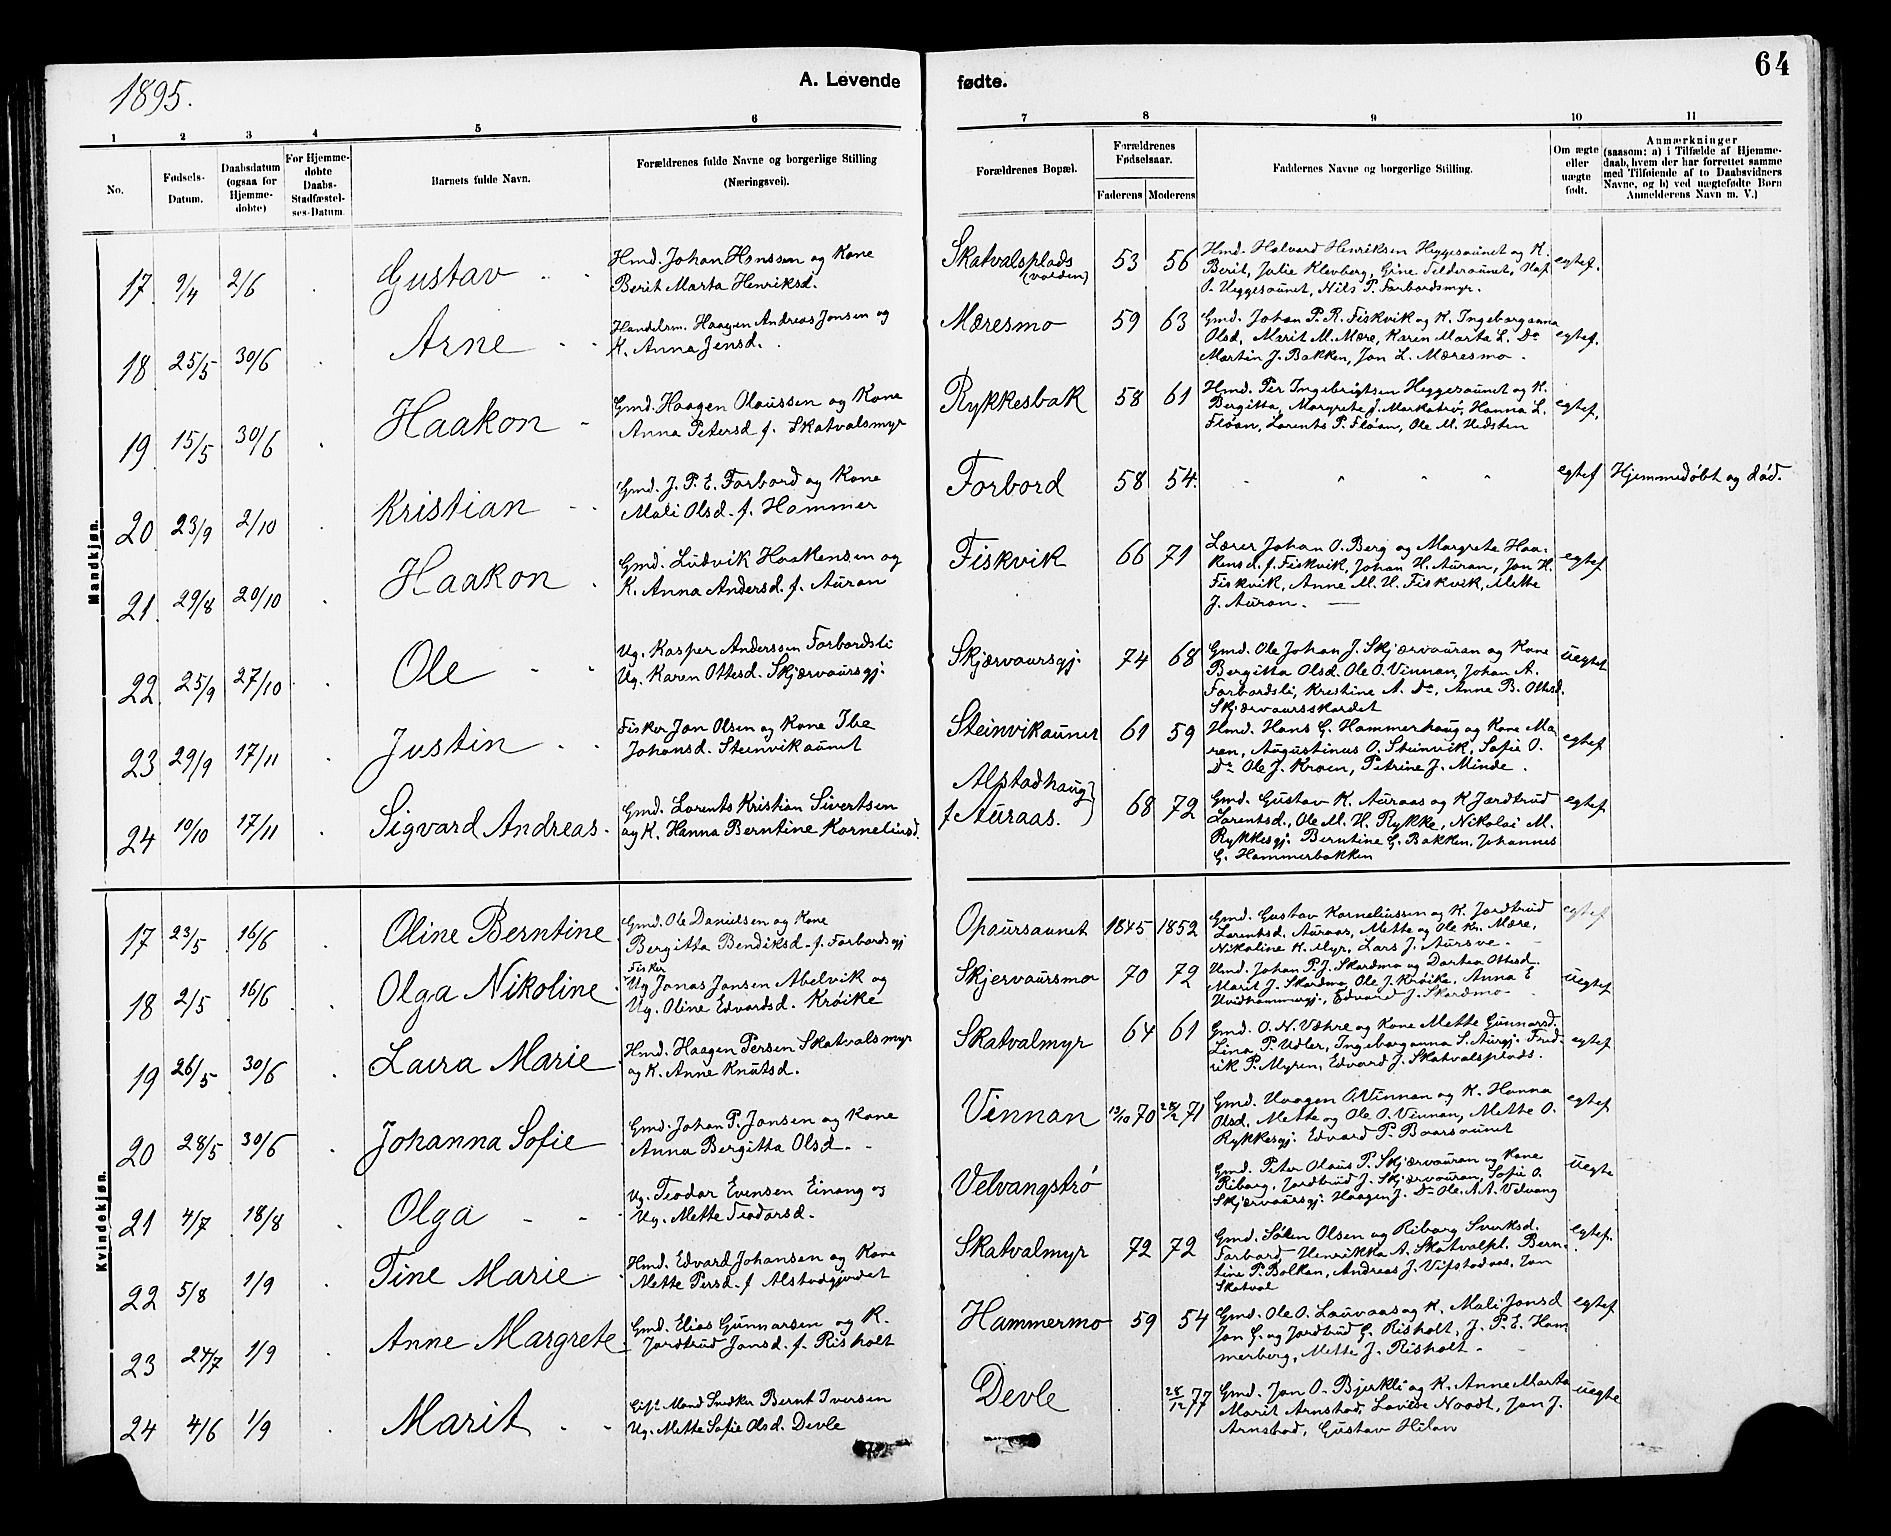 1895.
A. Levende fødte.
64
1 2 3 4 5 6 7 8 9 10 11
No.
Fødsels-Datum.
Daabsdatum (ogsaa for Hjemmedøbte)
For Hjemmedøbte Daabs-Stadfæstelses-Datum
Barnets fulde Navn.
Forældrenes fulde Navne og borgerlige Stilling (Næringsvei).
Forældrenes Bopæl.
Forældrenes Fødselsaar.
Faderens Moderens
Faddernes Navne og borgerlige Stilling.
Om ægte eller uægte født.
Anmærkninger (saasom: a) i Tilfælde af Hjemmedaab, hvem der har forrettet samme med Tilføiende af to Daabsvidners Navne, og b) ved uægtefødte Børn Anmelderens Navn m. V.)
Mandkjøn.
17 9/4 2/6 Gustav
Hmd. Johan Hanssen og Kone
Berit Marta Henriksd.
Skatvalsplads (valden) 53 56
Hmd. Halvard Henriksen Heggesaunet og K.
Berit, Julie Klevberg, Gine Felderaunet, Haf.
O. Heggesaunet, Nils P. Forbordsmyr.
egtef.
18 25/5 30/6 Arne
Handelsm. Haagen Andreas Jonsen og
K. Anna Jensd.
Mæresmo 59 63
Gmd. Johan P. R. Fiskvik og K. Ingeborganna
Olsd, Marit M. Mære, Karen Marta L. Do
Martin J. Bakken, Jon L. Mæresmo.
egtef.
19 15/5 30/6 Haakon
Gmd. Haagen Olaussen og Kone
Anna Petersd f. Skatvalsmyr
Rykkesbak 58 61
Hmd. Per Ingebrigtsen Heggesaunet og K.
Bergitta, Margrete J. Markatrø, Hanna L.
Fløan, Lorents P. Fløan, Ole M. Hedsten
egtef.
20 23/9 2/10 Kristian
Gmd. J. P. E. Forbord og Kone
Mali Olsd. f. Hammer
Forbord 58 54.
egtef Hjemmedøbt og død.
21 29/8 20/10 Haakon
Gmd. Ludvik Haakensen og
K. Anna Andersd. f. Auran
Fiskvik 66 71
Lærer Johan O. Berg og Margrete Haa-
kensd. f. Fiskvik, Johan H. Auran, Jon H.
Fiskvik, Anne M. H. Fiskvik, Mette
J. Auran.
egtef
22 25/9 27/10 Ole
Ug. Kasper Anderssen Forbordsli
Ug. Karen Ottesd. Skjærvaursgj.
Skjærvaursgj. 74 68
Gmd. Ole Johan J. Skjærvauran og Kone
Bergitta Olsd. Ole O. Vinnan, Johan A.
Forbordsli, Krestine A. Do, Anne B. Ottesd.
Skjærvaursskardet
uegtef
23 29/9 17/11 Justin
Fisker Jon Olsen og Kone Ibe
Johansd. Steinvikaunet
Steinvikaunet 61 59
Hmd. Hans G. Hammerhaug og Kone Ma-
ren, Augustinus O. Steinvik, Sofie O.
Do Ole J. Kroen, Petrine J. Minde.
egtef
24 10/10 17/11 Sigvard Andreas.
Gmd. Lorents Kristian Sivertsen
og K. Hanna Berntine Korneliusd.
Alstadhaug
f Auraas. 68 72
Gmd. Gustav K. Auraas og K Jardtrud
Larentsd., Ole M. H. Rykke, Nikolai M.
Rykkesgj. Berntine G. Bakken, Johannes
G. Hammerbakken
egtef
Kvindekjøn.
17 23/5 16/6 Oline Berntine
Gmd. Ole Danielsen og Kone
Bergitta Bendiksd. f. Forbordsgj
Opaursaunet 1845 1852
Gmd. Gustav Korneliussen og K. Jardtrud
Larentsd. Auraas, Mette og Ole Kr. Mære,
Nikoline K. Myr, Lars J. Aursve.
egtef
18 2/5 16/6 Olga Nikoline
Fisker
Ug Jonas Jonsen Abelvik og
Ug. Oline Edvardsd. Krøike
Skjervaursmo 70 72
Hmd. Johan P. J. Skardmo og Dortea Ottesd.
Marit J. Skardmo, Ole J. Krøike, Anna E
Hvidhammergj., Edvard J. Skardmo
uegtef
19 26/5 30/6 Laura Marie
Hmd. Haagen Persen Skatvalsmyr
og K. Anne Knutsd.
Skatvalmyr 64 61
Gmd. O. N. Væhre og Kone Mette Gunnarsd.
Lina P. Udler, Ingeborganna S. Aurgj. Fred-
rik P. Myren, Edvard J. Skatvalsplads.
egtef
20 28/5 30/6 Johanna Sofie
Gmd. Johan P. Jonsen og Kone
Anna Bergitta Olsd.
Vinnan 13/10 70 28/2 71
Gmd. Haagen O. Vinnan og K. Hanna
Olsd, Mette og Ole O. Vinnan, Mette O.
Rykkesgj. Edvard P. Baarsaunet
egtef
21 4/7 18/8 Olga
Ug. Teodor Evensen Einang og
Ug. Mette Teodorsd.
Velvangstrø
Gmd. Peter Olaus P. Skjærvauran og Kone
Riborg, Jardtrud J. Skjærvauran, Sofie O.
Skjærvaursgj. Haagen J. Do Ole. A A. Velvang
uegte
22 5/8 1/9 Tine Marie
Hmd. Edvard Johansen og Kone
Mette Persd. f Alstadgjerdet
Skatvalmyr 72 72
Gmd. Søren Olsen og Riborg Sivertsd.
Forbord, Henrikka A. Skatvalpl. Bern-
tine P. Bolkan, Andreas J. Vifstadaas, Jon
Skatval
egtef.
23 24/7 1/9 Anne Margrete
Gmd. Elias Gunnarsen og K.
Jardtrud Jonsd. f. Risholt
Hammermo 59 54
Gmd. Ole O. Lauvaas og K. Mali Jonsd
Jon G. og Jardtrud G. Risholt, J. P. E. Ham
merberg, Mette J. Risholt
egtef
24 4/6 1/9 Marit
Gift Mand Snedker Bernt Iversen
Ug. Mette Sofie Olsd. Devle
Devle 28/12 77
Gmd. Jon O. Bjerkli og K. Anne Marta
Marit Arnstad, Lovise Naadt, Jon J.
Arnstad, Gustav Hilan
uegte